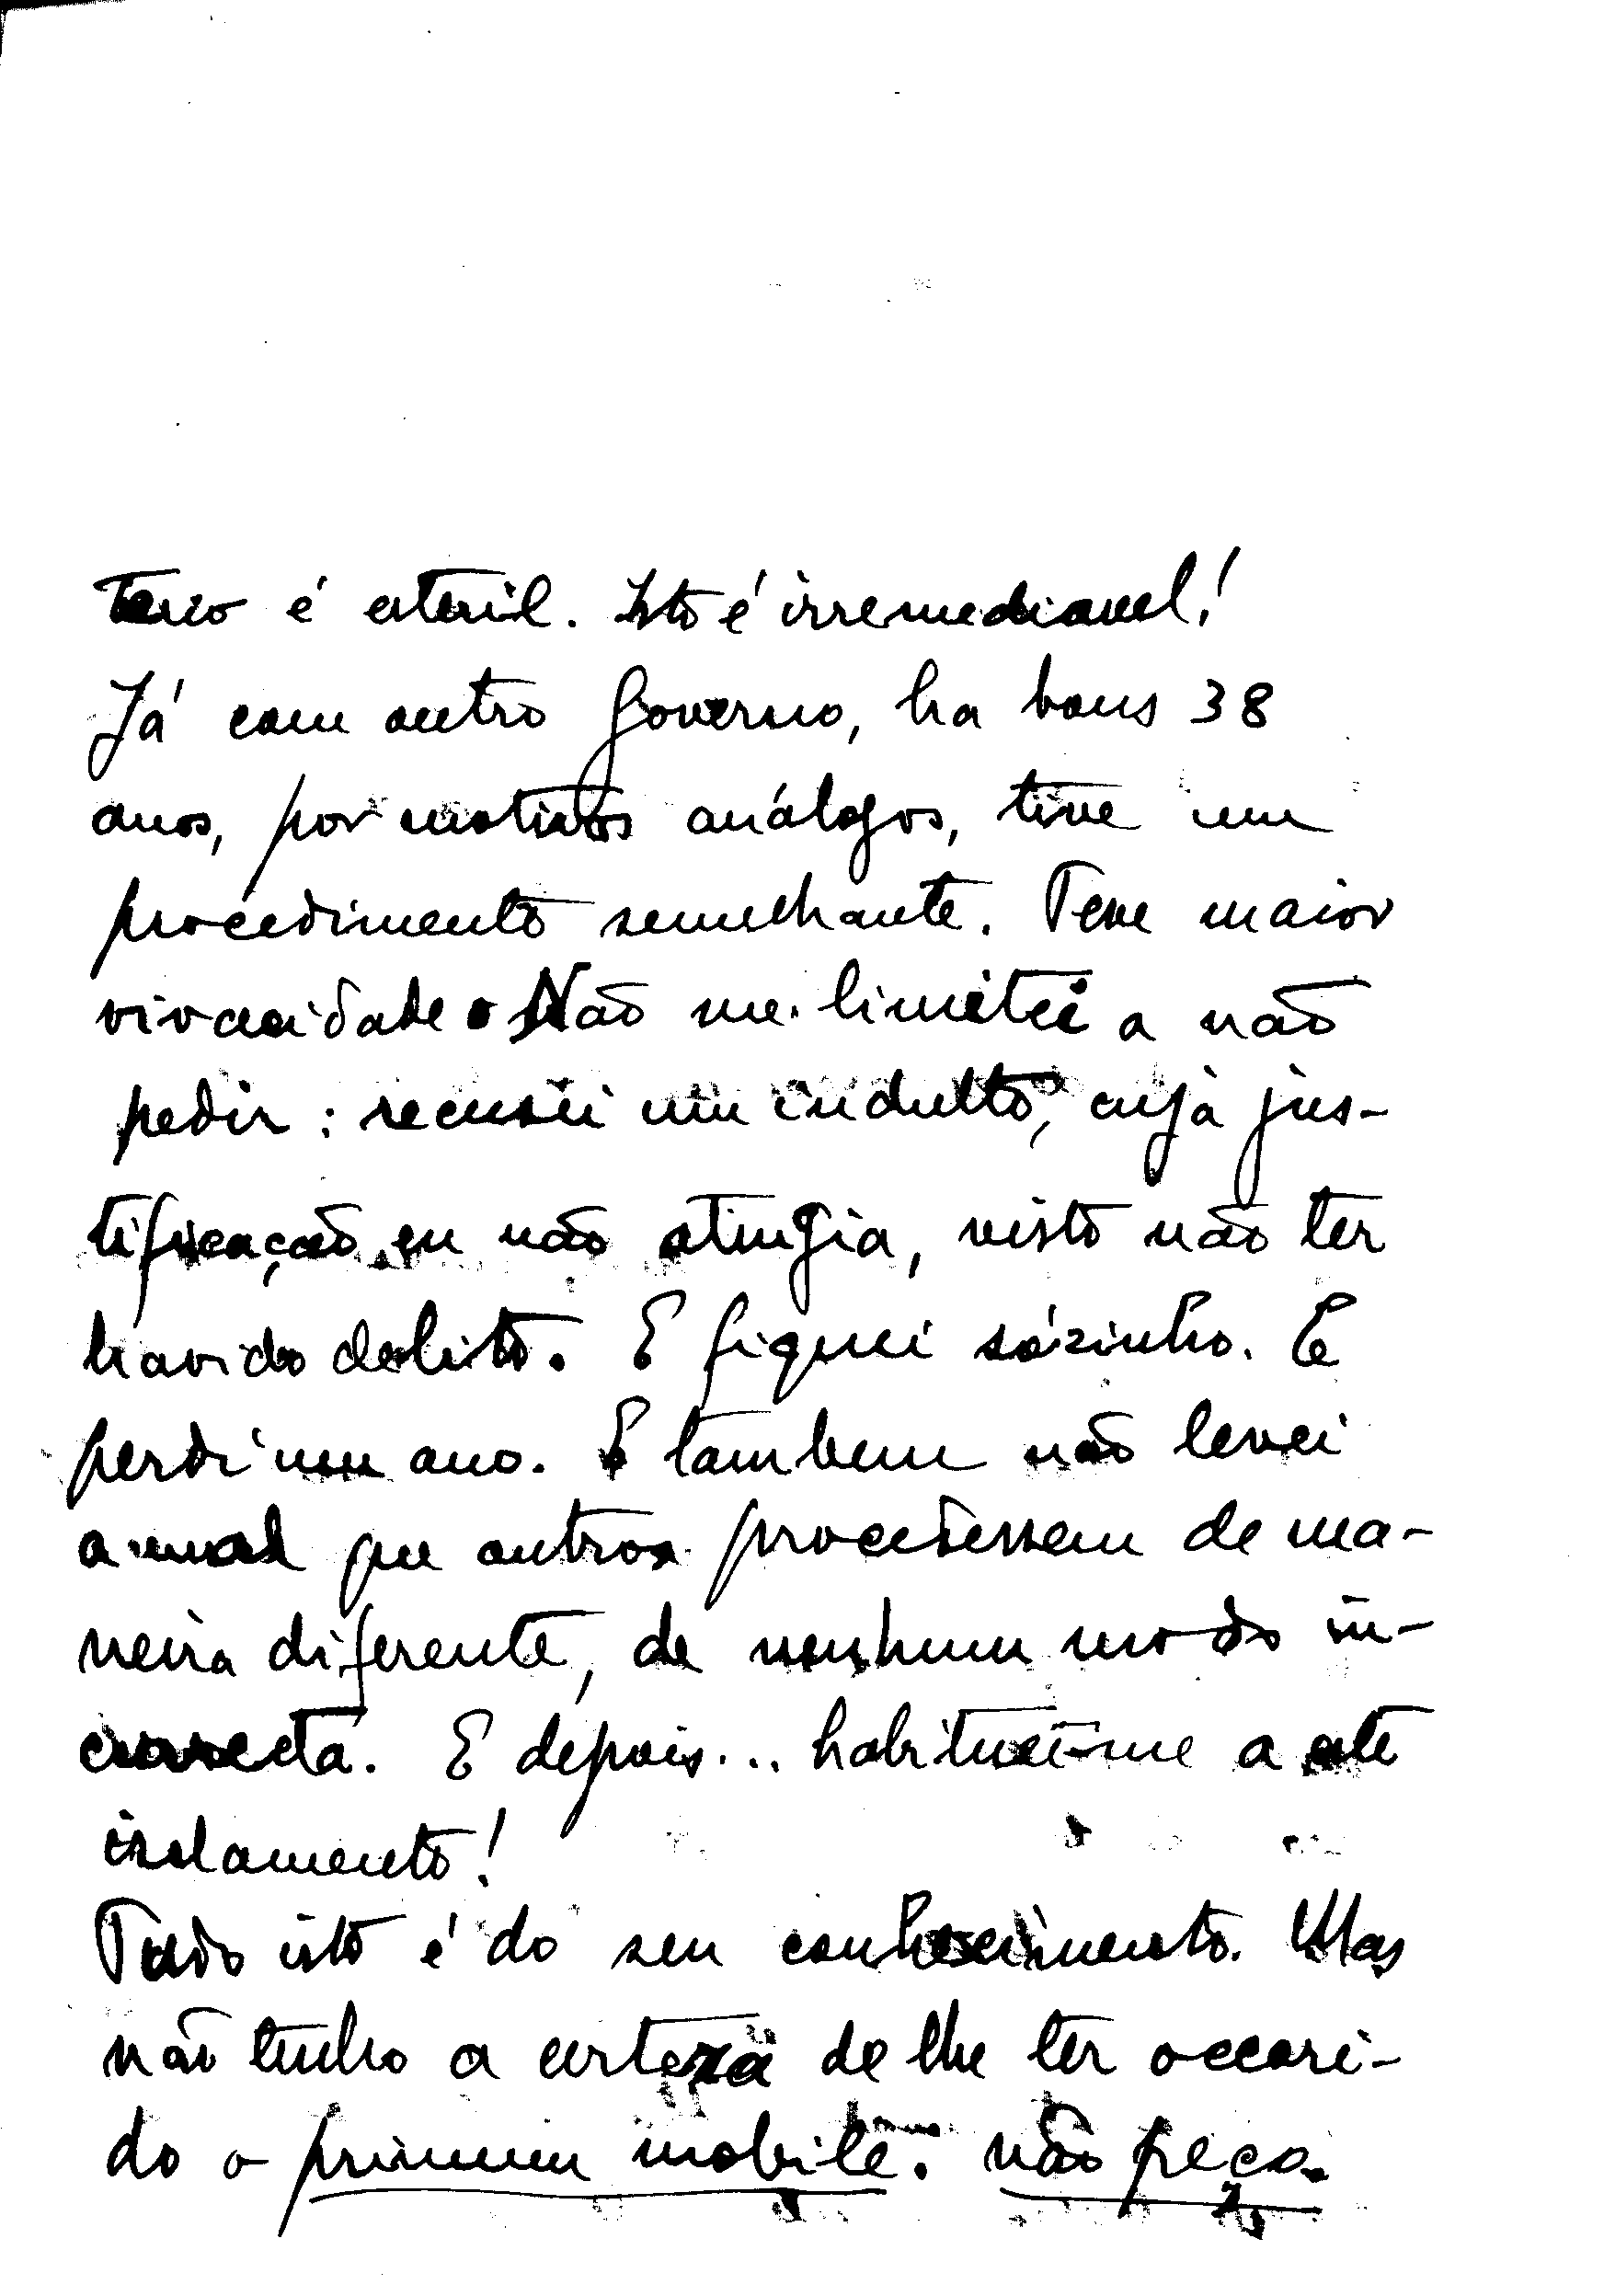 é esteril. Isto é irremediavel!
Já com outro Governo, ha bons 38
anos, por motivos análogos, tive um
procedimento semelhante. Teve maior
vivacidade. Não me limitei a não
pedir: recusei um indulto, cuja jus-
tificação eu não atingia, visto não ter
havido delito. E fiquei sózinho. E
perdi um ano. E tambem não levei
a mal que outros procedessem de ma-
neira diferente, de nenhum modo in-
correcta. E depois... habituei-me a este
isolamento!
Tudo isto é do seu conhecimento. Mas
não tenho a certeza de lhe ter occori-
do o primum mobile: não peço.